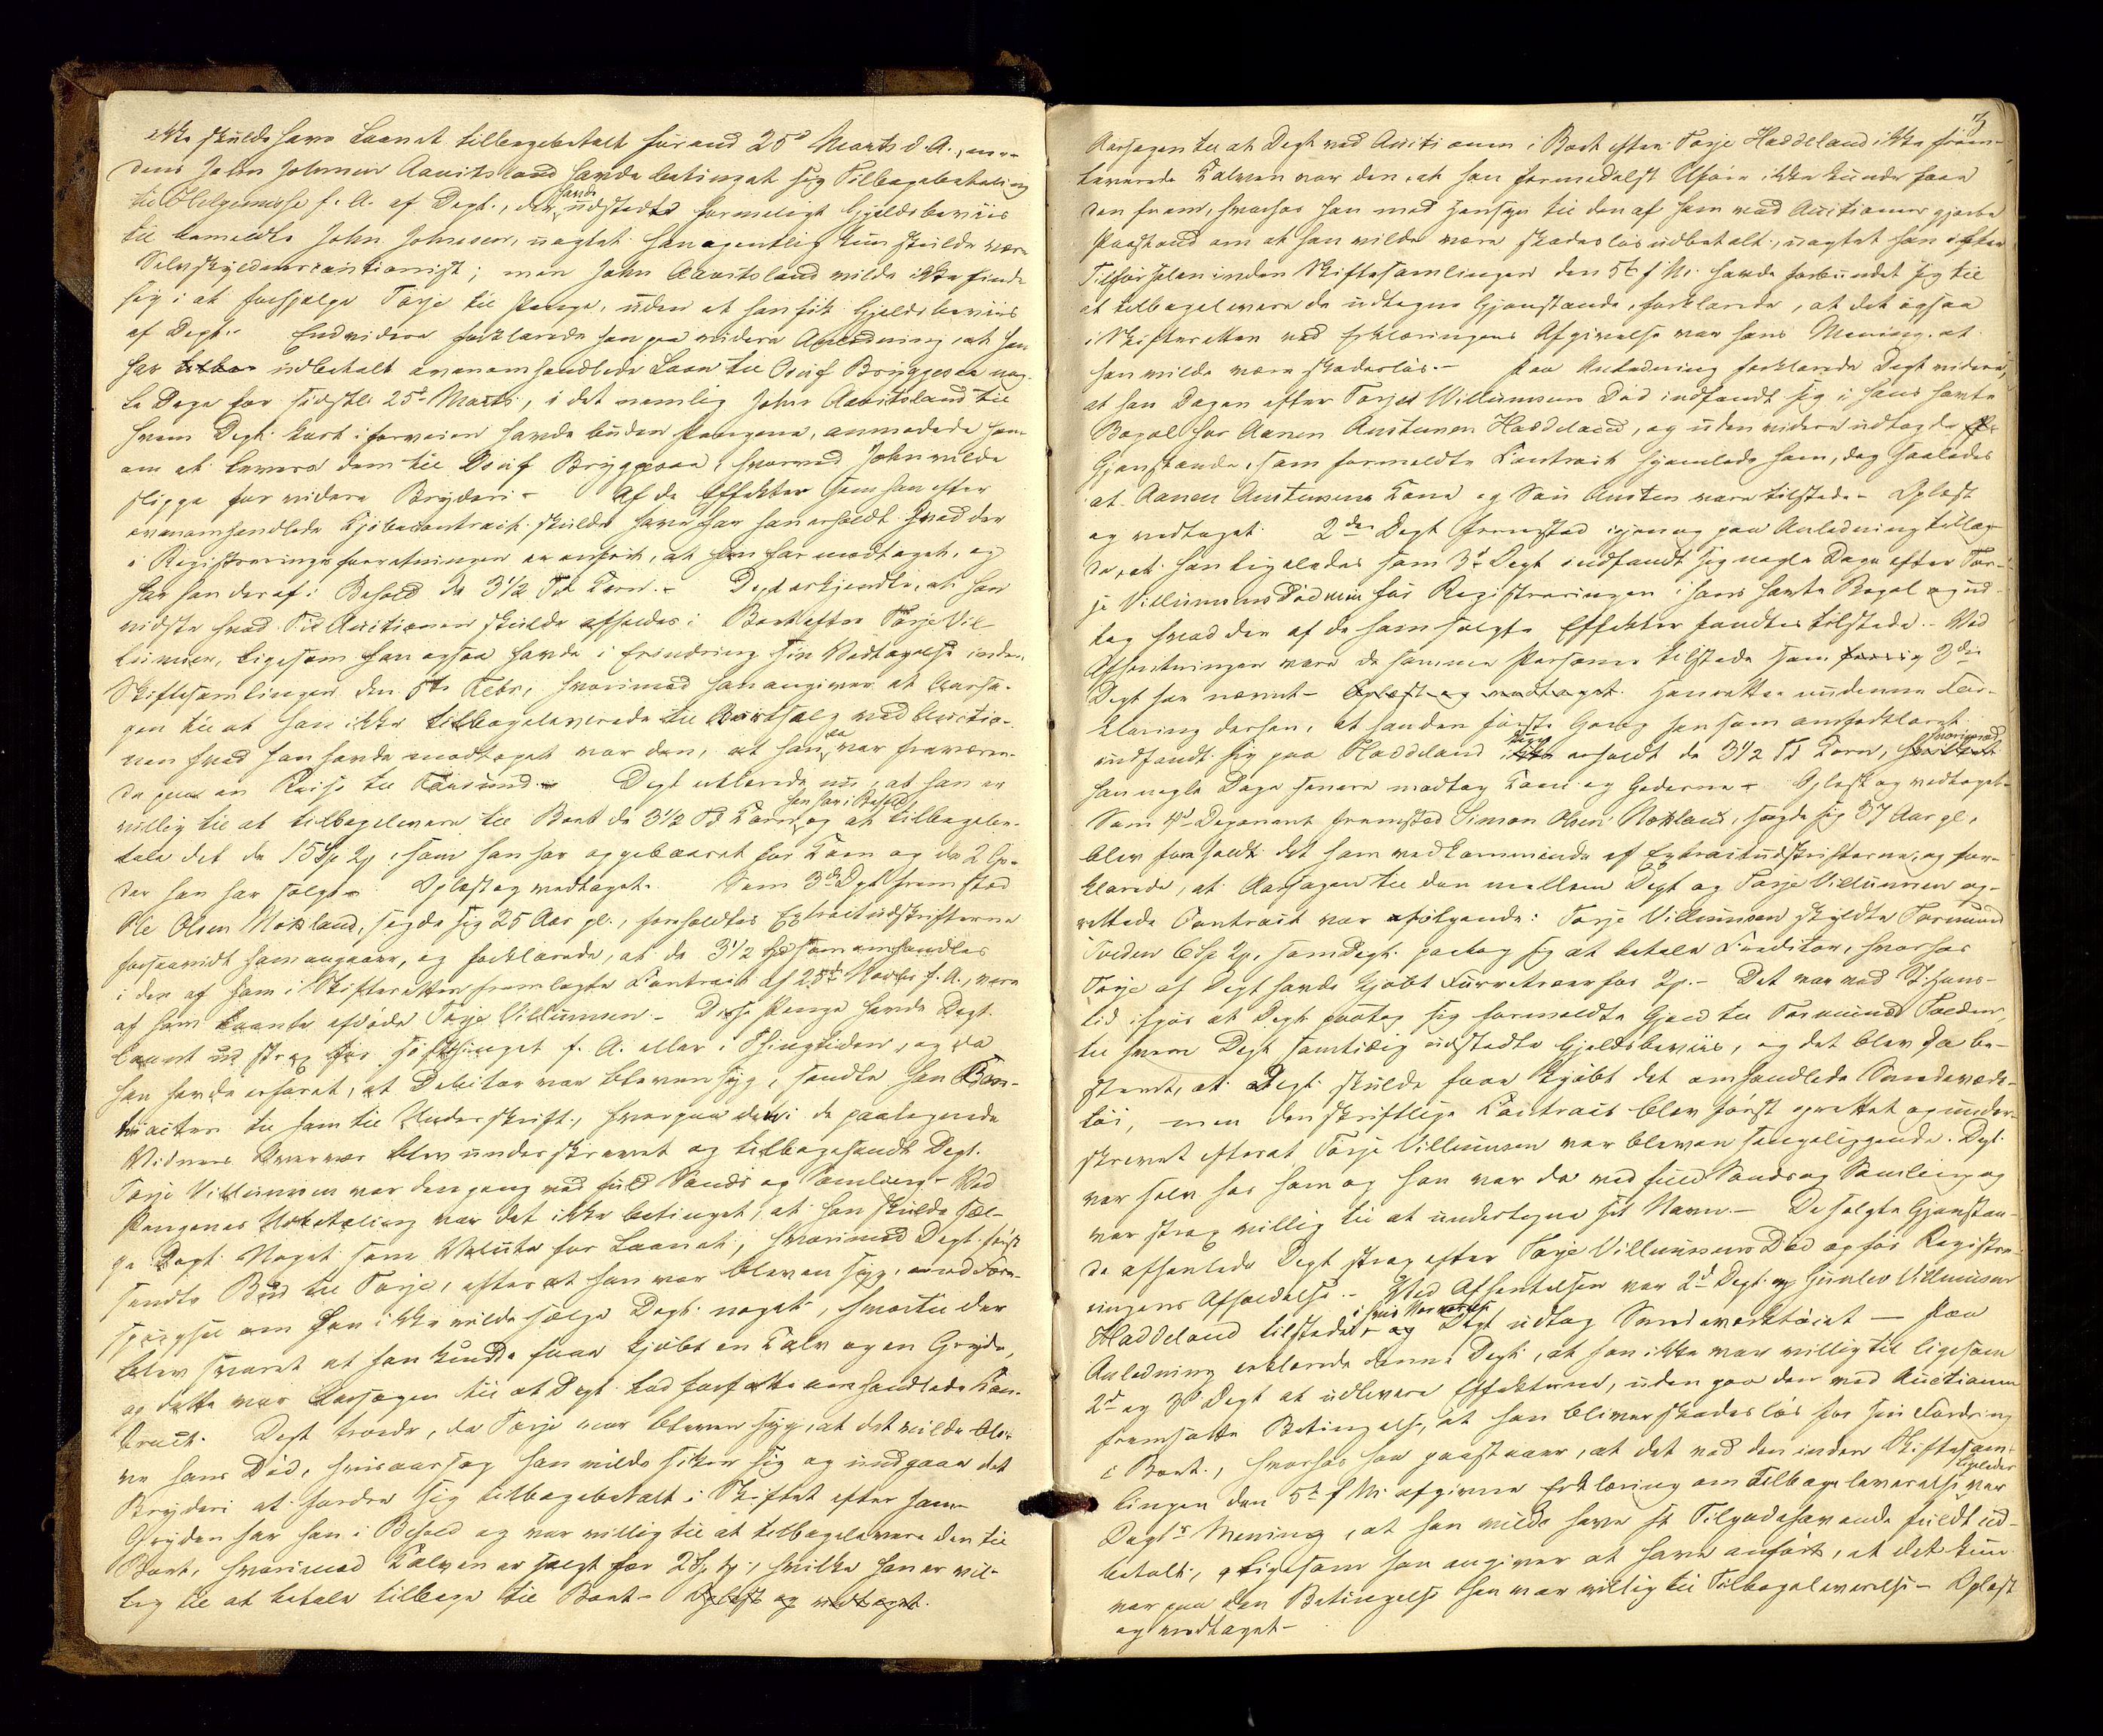 ikke skulde have Laanet tilbagebetalt førend 25d Marts d. A., me-
dens John Johnsen Aavitsland havde betinget sig Tilbagebetaling
til Helgemesse f. A. af Dept., der havde udstedt formeligt Gjeldsbeviis
til bemeldte John Johnsen, uagtet han egentlig kun skulde være
Selvskyldnercautionist; men John Aavitsland vilde ikke finde
sig i at forhjælpe Torje til Penge, uden at han fik Gjeldsbeviis
af Dept. Endvidere forklarede han paa videre Anledning, at han
har udbetalt ovenomhandlede Laan til Bryggesaa nog-
le Dage før sidstl. 25d Marts, i det nemlig John Aavitsland til
hvem Dept. kort iforveien havde buden Pengene, anmodede ham
om at levere dem til Bryggesaa, hvorved John vilde
slippe for videre Bryderi. Af de Effekter som han efter
ovenomhandlede Kjøbecontract skulde have har han erholdt hvad der
i Registreringsforretningen er anført, at han har modtaget, og
har han deraf i Behold de 3½ Td Korn. Dept erkjendte, at han
vidste hvad Tid Auctionen skulde afholdes i Boet efter Torje Vil-
lumsen, ligesom han ogsaa havde i Erindring sin Vedtagelse inden
Skiftesamlingen den 5te Febr., hvorimod han angiver at Aarsa-
gen til at han ikke tilbageleverede til Bortsalg ved Auctio-
nen hvad han havde modtaget var den, at han da var fraværen-
de paa en Reise til Farsund. Dept erklærede nu, at han er
villig til at tilbagelevere til Boet de 3½ Td Korn han har i Behold, og at tilbagebe-
tale det de 15 Sp 2 som han har oppebaaret for Korn og de 2 Ge-
der han har solgt. Oplæst og vedtaget. Som 3die Dept fremstod
Ole Olsen Mokland, sagde sig 25 Aar gl., foreholdtes Extraktudskrifterne
forsaavidt ham angaaer, og forklarede, at de 3½ Spd som omhandles
i den af ham i Skifteretten fremlagte Contract af 25de Novbr f. A., vare
af ham laante afdøde Torje Villumsen. Disse Penge havde Dept.
laant ud strax før Høstthinget f. A. eller i Thingtiden, og da
han havde erfaret, at Debitor var bleven syg, sendte han Con-
tracten til ham til Underskrift, hvorpaa den i de paategnede
Vidners Nærvær blev underskrevet og tilbagesendt Dept.
Torje Villumsen var dengang ved fuld Sands og Samling. Ved
Pengenes Udbetaling var det ikke betinget, at han skulde sæl-
ge Dept. Noget som Valuta for Laanet, hvorimod Dept. først
sendte Bud til Torje, efterat han var bleven syg, med Fore-
spørgsel om han ikke vilde sælge Dept. noget, hvortil der
blev svaret at han kunde faae kjøbt en Kalv og en Gryde,
og dette var Aarsagen til at Dept. lod forfatte omhandlede Con-
tract. Dept troede, da Torje var bleven syg, at det vilde ble-
ve hans Død, hvisaarsag han vilde sikre sig og undgaae det
Bryderi at fordre sig tilbagebetalt i Skiftet efter ham.
Gryden har han i Behold og var villig til at tilbagelevere den til
Boet, hvorimod Kalven er solgt for 2 Sp, hvilke han er vil-
lig til at betale tilbage til Boet. Oplæst og vedtaget.
3
Aarsagen til at Dept ved Auctionen i Boet efter Torje Haddeland ikke frem-
leverede Kalven var den, at han formedelst Uføre ikke kunde faae
den frem, hvorhos han med Hensyn til den af ham ved Auctionen gjorte
Paastand om at han vilde være skadesløs udbetalt, uagtet han efter
Tilførselen inden Skiftesamlingen den 5te f. M. havde forbundet sig til
at tilbagelevere de udtagne Gjenstande, forklarede, at det ogsaa
i Skifteretten ved Erklæringens Afgivelse var hans Mening, at
han vilde være skadesløs. Paa Anledning forklarede Dept videre,
at han Dagen efter Torjes Villumsens Død indfandt sig i hans havte
Bopæl hos Aanen Austensen Haddeland, og uden videre udtog de
Gjenstande, som formeldte Contract hjemlede ham, dog saaledes
at Aanen Austensens Kone og Søn Austen vare tilstede. Oplæst
og vedtaget. 2den Dept fremstod igjen og paa Anledning tillag-
de, at han ligeledes som 3d Dept indfandt sig nogle Dage efter Tor-
je Villumsens Død men før Registreringen i hans havte Bopæl og ud-
tog hvad der af de ham solgte Effekter fandtes tilstede. Ved
Afhentningen vare de samme Personer tilstede som 3die
Dept har nævnt. Oplæst og vedtaget. Han retter nu denne For-
klaring derhen, at han den første Gang han som anført
indfandt sig paa Haddeland erholdt de 3½ Td Korn, hvorimod
han nogle Dage senere modtog og Gederne. Oplæst og vedtaget.
Som 4d Deponent fremstod Simon Olsen Mokland, sagde sig 37 Aar gl.,
blev foreholdt det ham vedkommende af Extractudskrifterne, og for-
klarede, at Aarsagen til den mellem Dept og Torje Villumsen op-
rettede Contract var følgende: Torje Villumsen skyldte Tormund
Tveden 6 Sp 2, som Dept. paatog sig at betale Creditor, hvorhos
Torje af Dept havde kjøbt Furretræer for 2. Det var ved St. Hans-
tid ifjor at Dept. paatog sig formeldte Gjeld til Tormund Tveden,
til hvem Dept samtidig udstedte Gjeldsbeviis, og det blev da be-
stemt, at Dept. skulde faae kjøbt det omhandlede Smedeværk-
tøi, men den skriftlige Contract blev først oprettet og under-
skrevet efterat Torje Villumsen var bleven sengeliggende. Dept.
var selv hos ham og han var da ved fuld Sands og Samling og
var strax villig til at undertegne sit Navn. De solgte Gjenstan-
de afhentede Dept strax efter Torje Villumsens Død og før Registre-
ringens Afholdelse. Ved Afhentelsen var 2d Dept. og Gunlev Villumsen
Haddeland tilstede, i hvis Nærværelse Dept udtog Smedeværktøiet — Paa
Anledning erklærede denne Dept, at han ikke var villig til ligesom
2d og 3d Dept at udlevere Effekterne, uden paa den ved Auctionen
fremsatte Betingelse, at han bliver skadesløs for sin Fordring
i Boet, hvorhos han paastaaer, at det ved den inden Skiftesam-
lingen den 5te f. M. afgivne Erklæring om Tilbageleverelse ligeledes var
Depts Mening, at han vilde have sit Tilgodehavende fuldt ud-
betalt, ligesom han angiver at have anført, at det kun
var paa den Betingelse han var villig til Tilbageleverelse. Oplæst
og vedtaget.